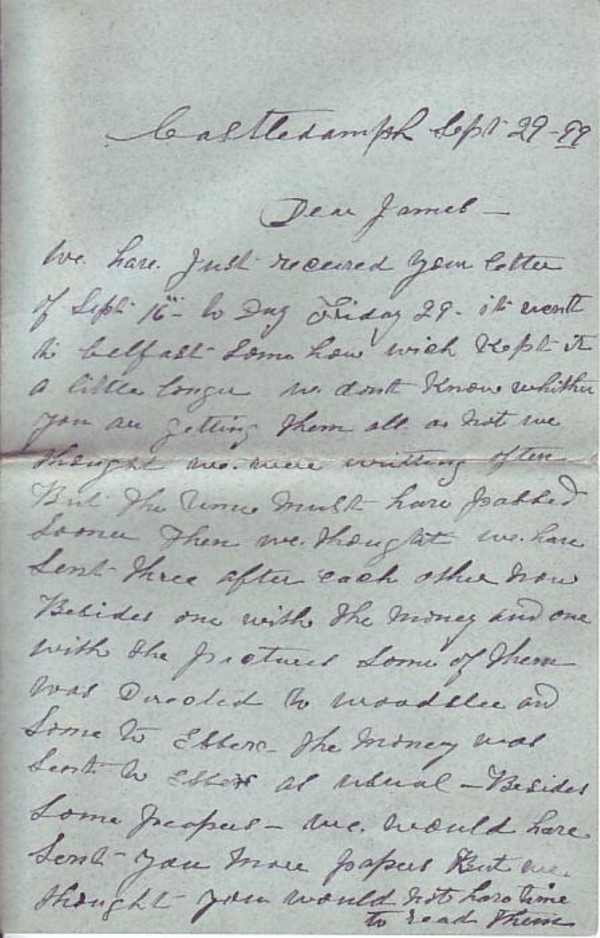 Castledamph Sept 29-99
Dear James -
We have Just received your letter
of Sept 16th - to Day Friday 29 - it went
to belfast some how wich kept it
a little longer we dont Know whither
you are getting them all or not we
thought we were writting often
But the time must have passed
sooner then we thought we have
sent three after each other now
Besides one with the money and one
with the pictures some of them
was Directed to woodslee and
some to Essex - the money was
sent to Essex as usual - Besides
some peapers - we would have
sent you more papers But we
thought you would not have time
to read them